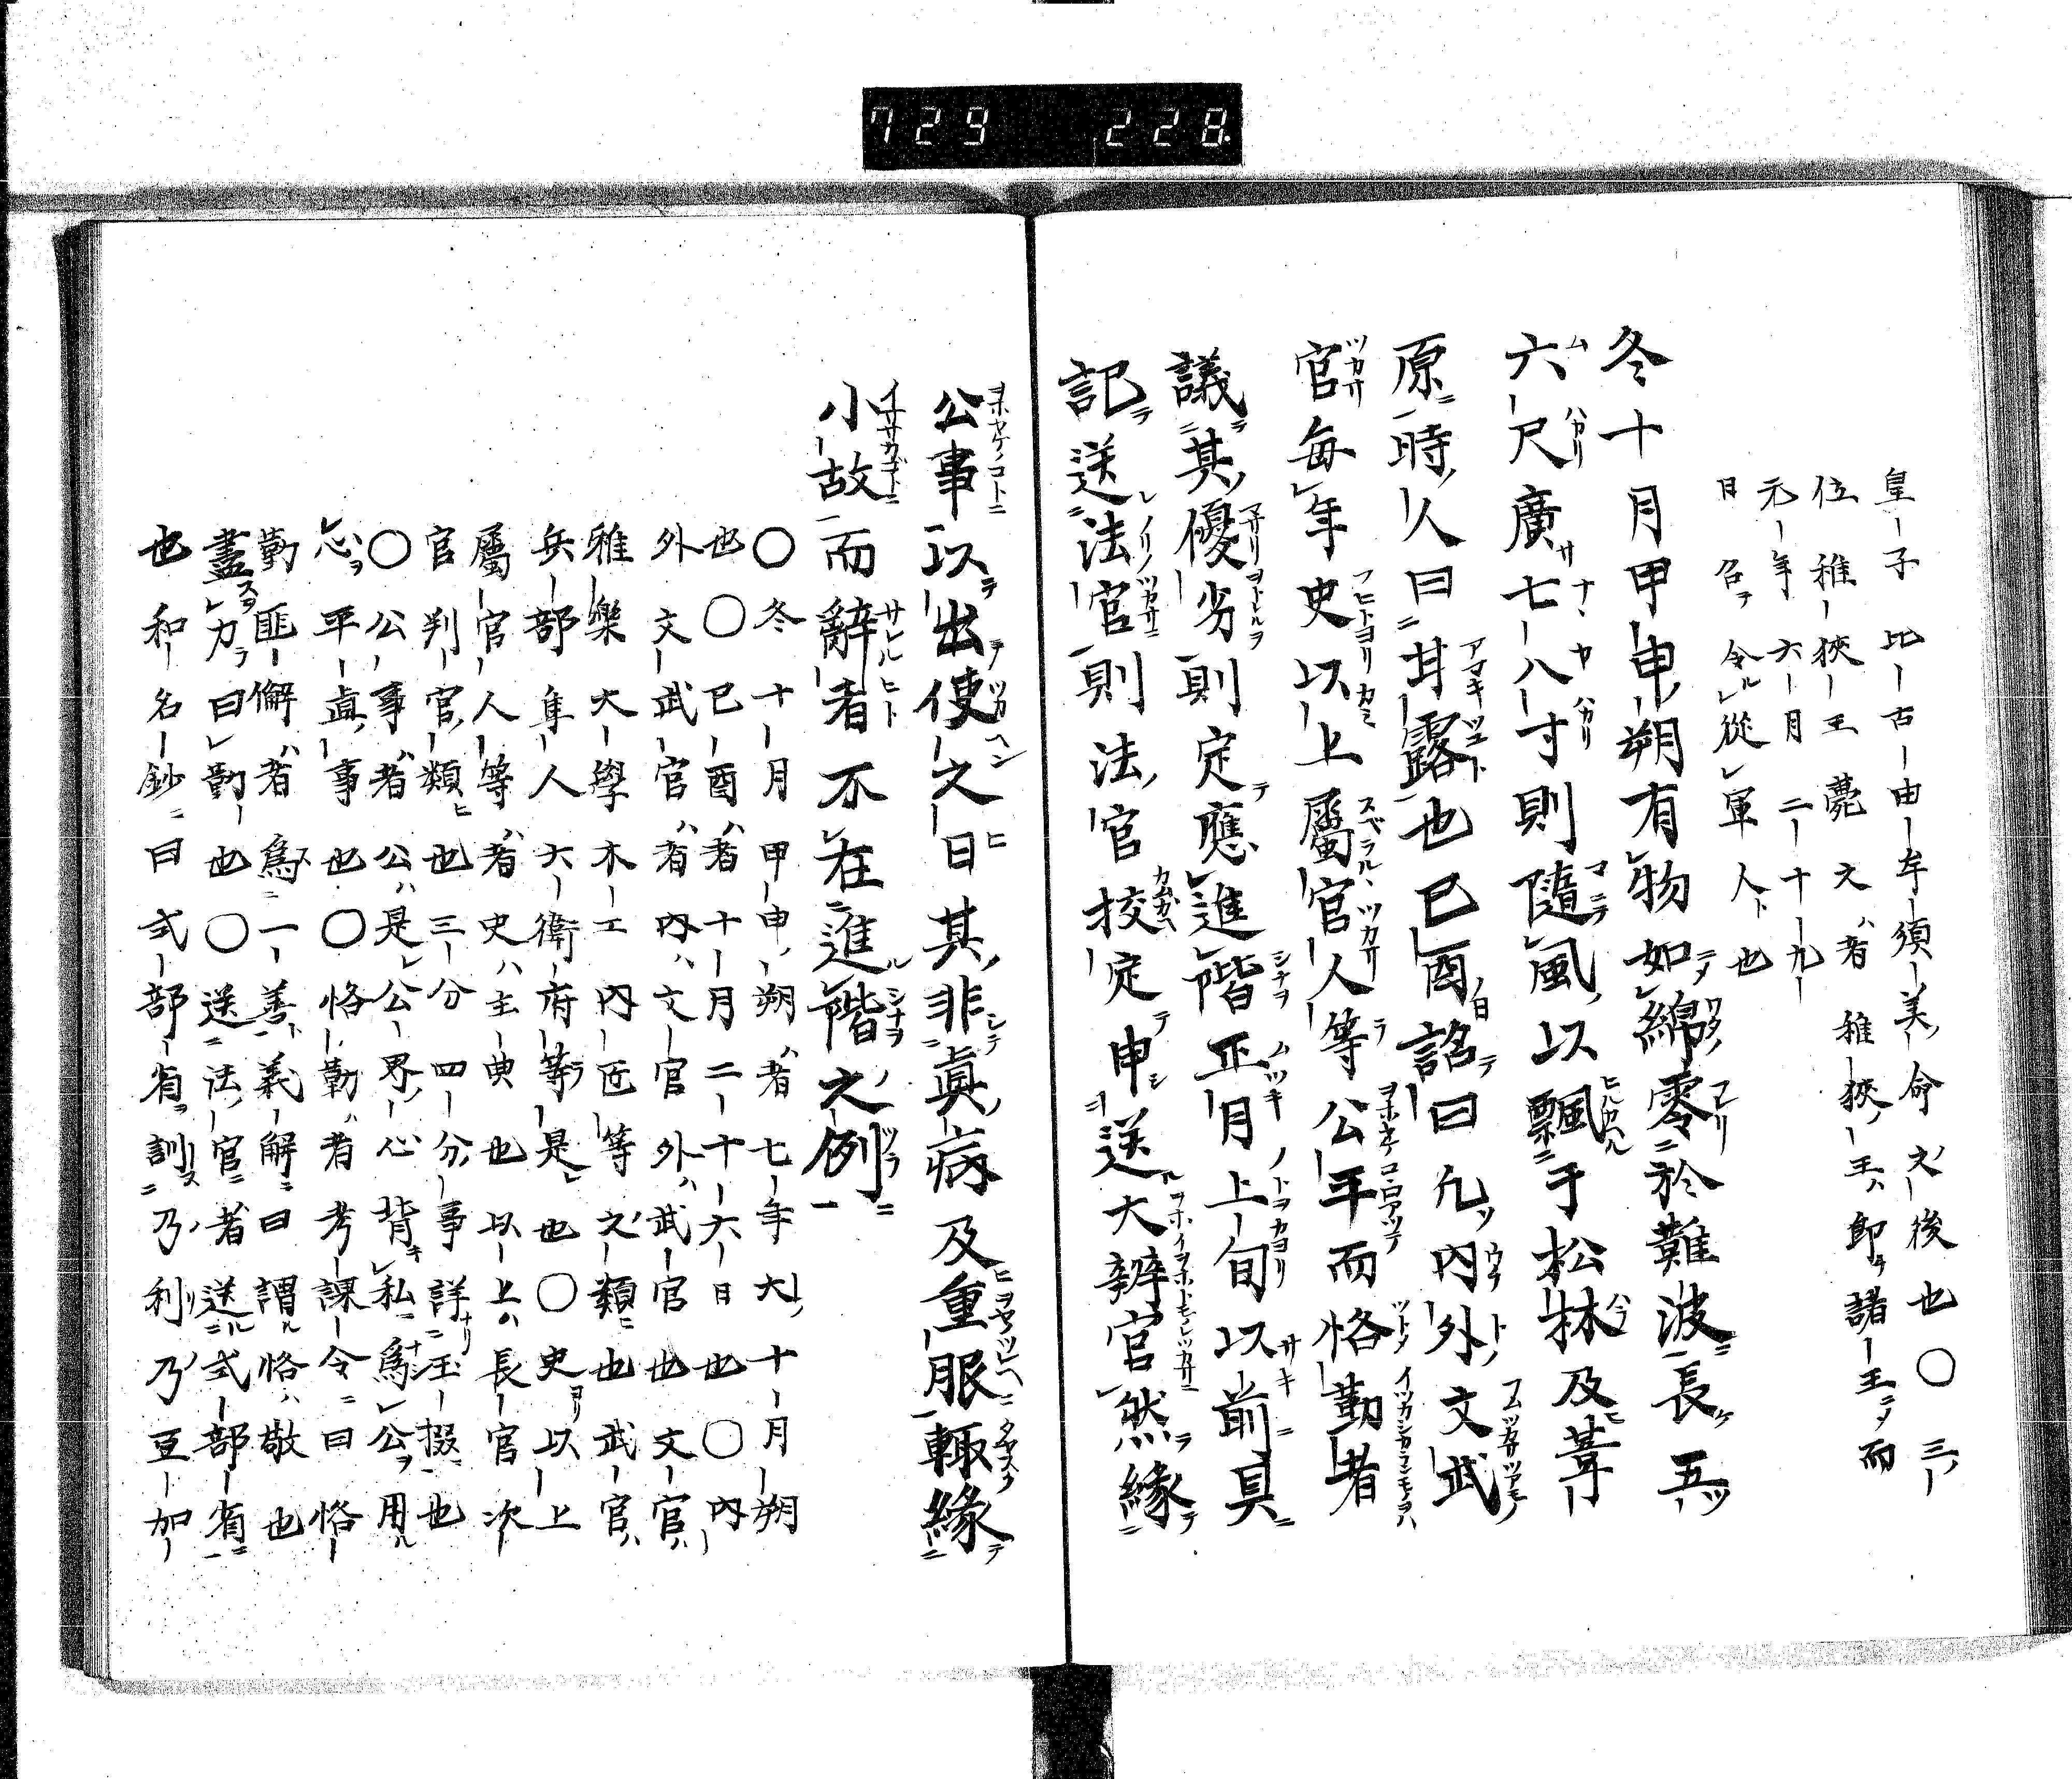 729 228
皇子比古由牟須美命之後也〇三
位稚狹王薨文者稚狹王即諸王ニメ而
元年六月二十九
日召令從軍人也
冬十月甲申朔有物如綿零於難波長五
六尺廣七八寸則隨風以飄于松林及葦
原時人曰甘露也已酉詔曰凡內外文武
官每年史以上屬官人等公平而恪勤者
議其優劣則定應進階正月上旬以前具
記送法官則法官挍定申送大辨官然緣
公事以出使之日其非眞病及重服輙緣
小故而辭者不在進階之例
〇冬十月甲申朔者七年大十月朔
也〇已酉者十月二十六日也〇內
外文武官者內文官外武官也文官
雅樂大學木工內匠等之類也武官
兵部隼人六衛府等是也〇史以上
屬官人等者史主典也以上長官次
官判官類也三分四分事詳ニ玉掇也
〇公事者公是公界心背私爲公用
心平眞事也〇恪勤者考課令曰恪
勤匪懈者爲一善義解曰謂恪敬也
盡力曰勤也〇送法官者送式部省
也和名鈔曰式部省訓乃利乃豆加